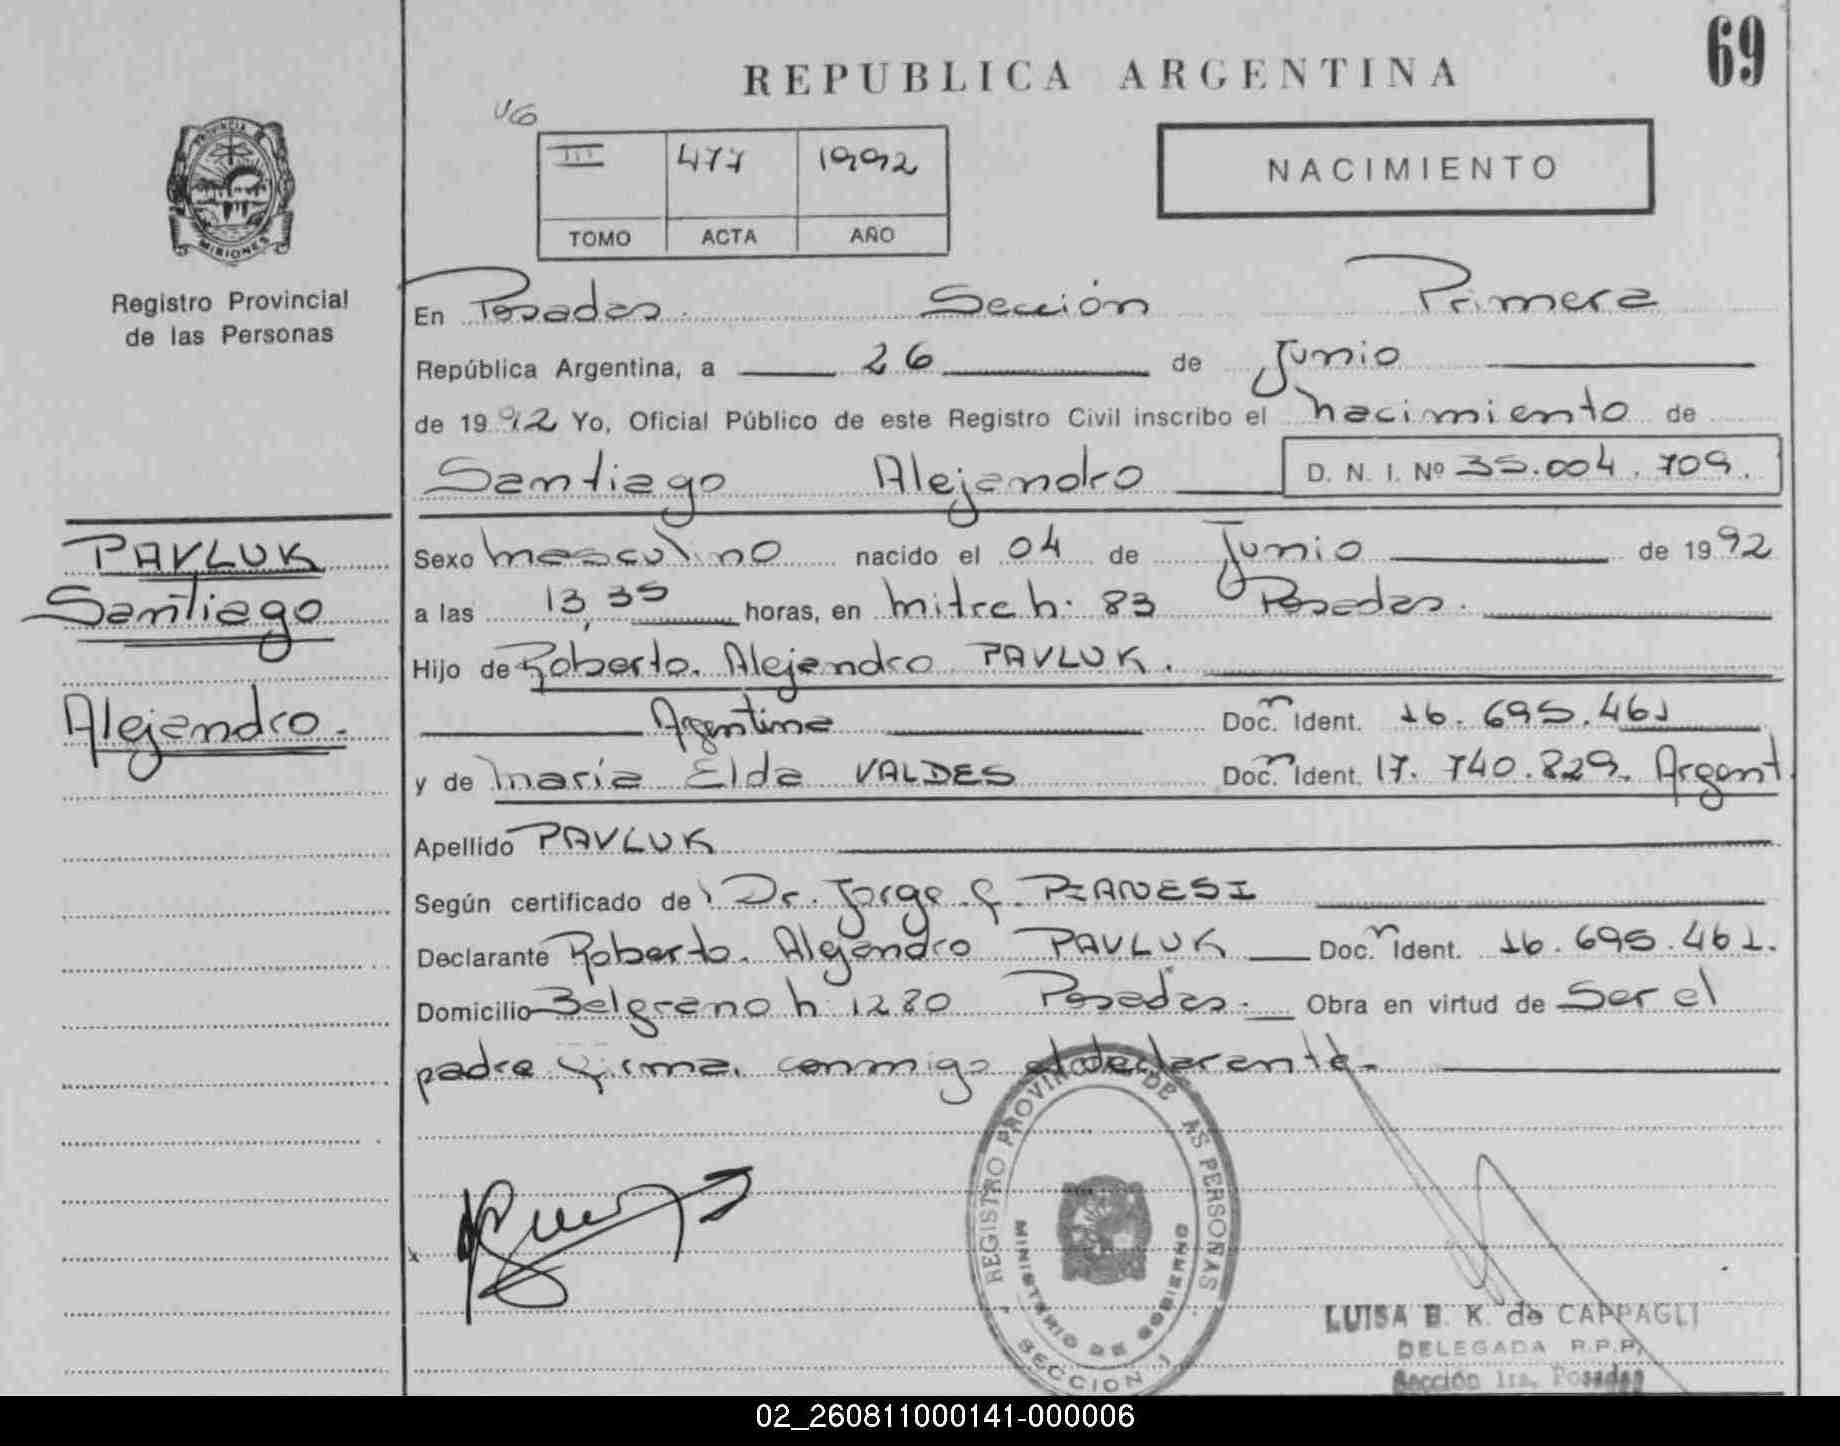 69
REPUBLICA ARGENTINA
PROVINCIA
MISIONES
Registro Provincial
de las Personas
III 477 1992
TOMO ACTA AÑO
NACIMIENTO
En Posadas Sección Primera
República Argentina, a 26 de Junio
de 1992 Yo, Oficial Público de este Registro Civil inscribo el nacimiento de
Santiago Alejandro D. N. I. Nº 35.004.709.
PAVLUK
Santiago
Alejandro.
Sexo masculino nacido el 04 de Junio de 1992
a las 13,35 horas, en Mitre h. 83 Posadas.
Hijo de Roberto Alejandro PAVLUK.
Argentina Doc. Ident. 16.695.461
y de María Elda VALDES Doc. Ident. 17.740.829. Argent.
Apellido PAVLUK
Según certificado de Dr. Jorge G. PIANESI
Declarante Roberto Alejandro PAVLUK Doc. Ident. 16.695.461.
Domicilio Belgrano h 1280 Posadas. Obra en virtud de Ser el
padre firma conmigo el declarante.
REGISTRO PROVINCIAL DE LAS PERSONAS
MINISTERIO DE GOBIERNO
SECCION 1
LUISA E. K. de CAPPAGLI
DELEGADA R.P.P.
Sección 1ra. Posadas
02_260811000141-000006